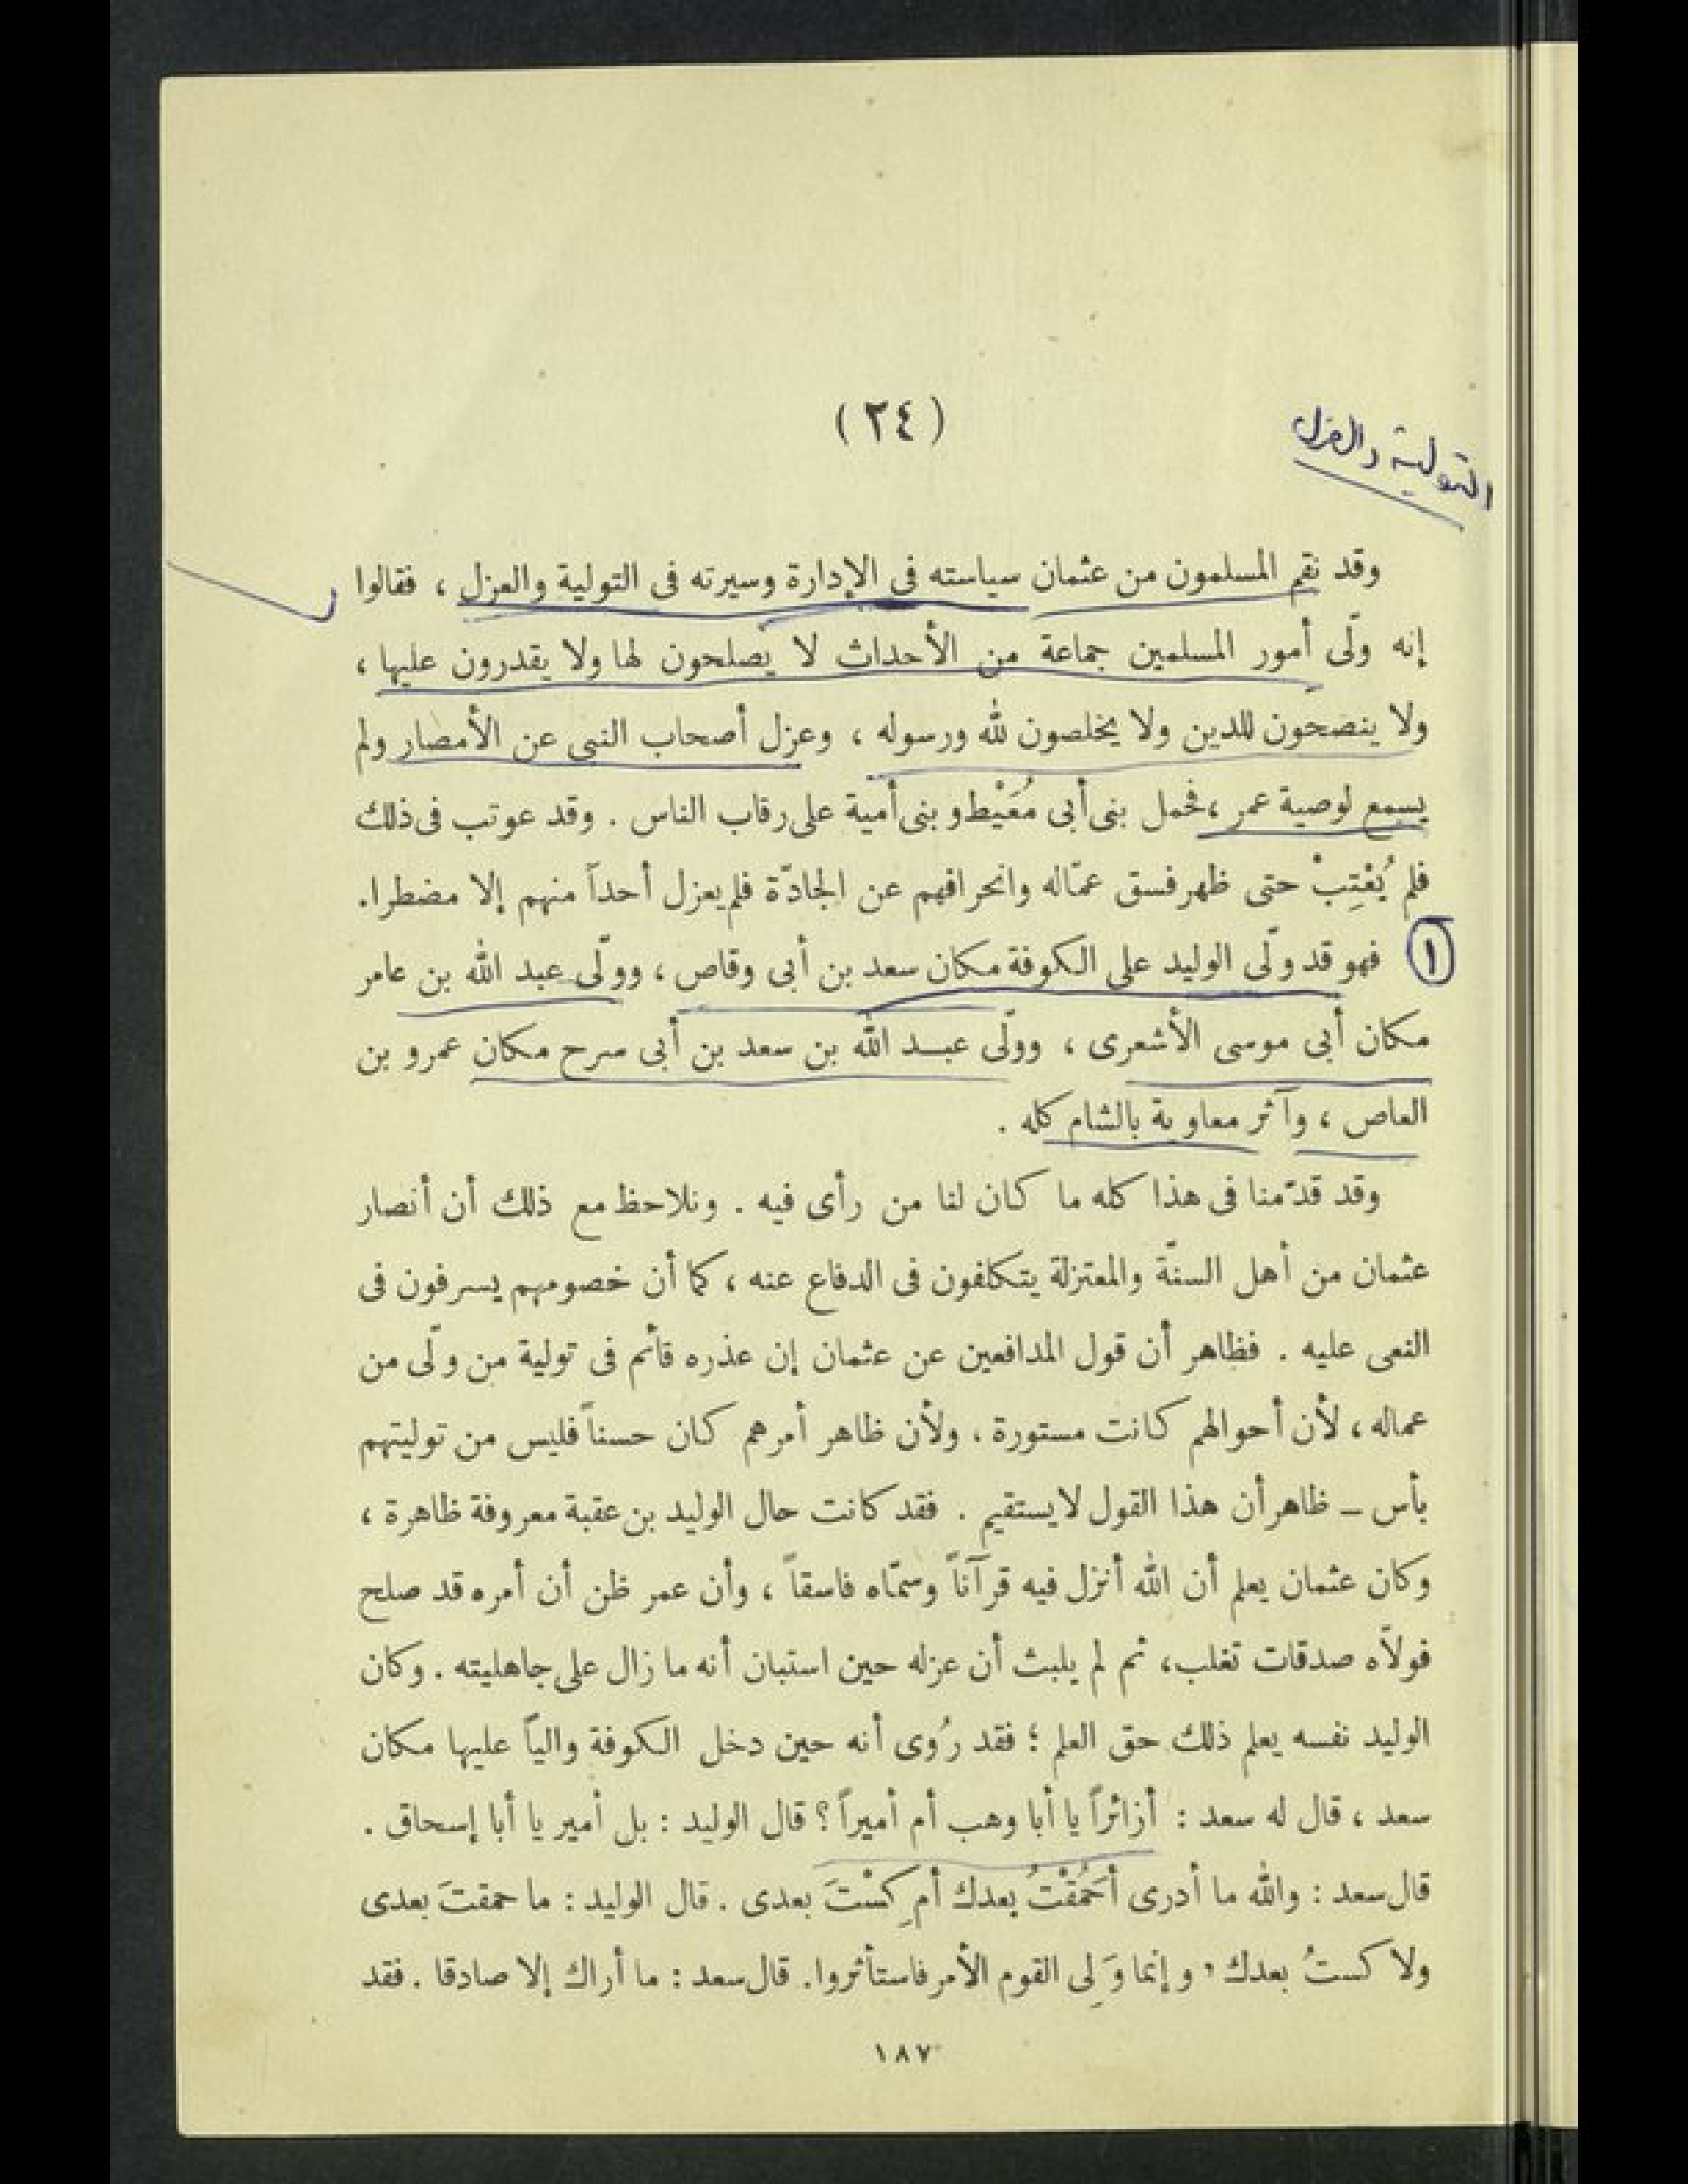 (٢٤)
التولية والعزل
وقد نقم المسلمون من عثمان سياسته فى الإدارة وسيرته فى التولية والعزل ، فقالوا
إنه ولّى أمور المسلمين جماعة من الأحداث لا يصلحون لها ولا يقدرون عليها ،
ولا ينصحون للدين ولا يخلصون لله ورسوله ، وعزل أصحاب النبى عن الأمصار ولم
يسمع لوصية عمر ، فحمل بنى أبى مُعَيْط وبنى أمية على رقاب الناس . وقد عوتب فى ذلك
فلم يُعْتِبْ حتى ظهر فسق عمّاله وانحرافهم عن الجادّة فلم يعزل أحداً منهم إلا مضطرا.
١ فهو قد ولّى الوليد على الكوفة مكان سعد بن أبى وقاص ، وولّى عبد الله بن عامر
مكان أبى موسى الأشعرى ، وولّى عبـد الله بن سعد بن أبى سرح مكان عمرو بن
العاص ، وآثر معاوية بالشام كله .
وقد قدّمنا فى هذا كله ما كان لنا من رأى فيه . ونلاحظ مع ذلك أن أنصار
عثمان من أهل السنّة والمعتزلة يتكلفون فى الدفاع عنه ، كما أن خصومهم يسرفون فى
النعى عليه . فظاهر أن قول المدافعين عن عثمان إن عذره قائم فى تولية من ولّى من
عماله ، لأن أحوالهم كانت مستورة ، ولأن ظاهر أمرهم كان حسناً فليس من توليتهم
بأس ـ ظاهر أن هذا القول لا يستقيم . فقد كانت حال الوليد بن عقبة معروفة ظاهرة ،
وكان عثمان يعلم أن الله أنزل فيه قرآناً وسمّاه فاسقاً ، وأن عمر ظن أن أمره قد صلح
فولاّه صدقات تغلب، ثم لم يلبث أن عزله حين استبان أنه ما زال على جاهليته . وكان
الوليد نفسه يعلم ذلك حق العلم ؛ فقد رُوى أنه حين دخل الكوفة والياً عليها مكان
سعد ، قال له سعد : أزائراً يا أبا وهب أم أميراً ؟ قال الوليد : بل أمير يا أبا إسحاق .
قال سعد : والله ما أدرى أحَمُقْتُ بعدك أم كِسْتَ بعدى . قال الوليد : ما حمقتَ بعدى
ولا كستُ بعدك ، وإنما وَلِى القوم الأمر فاستأثروا. قال سعد : ما أراك إلا صادقا . فقد
١٨٧